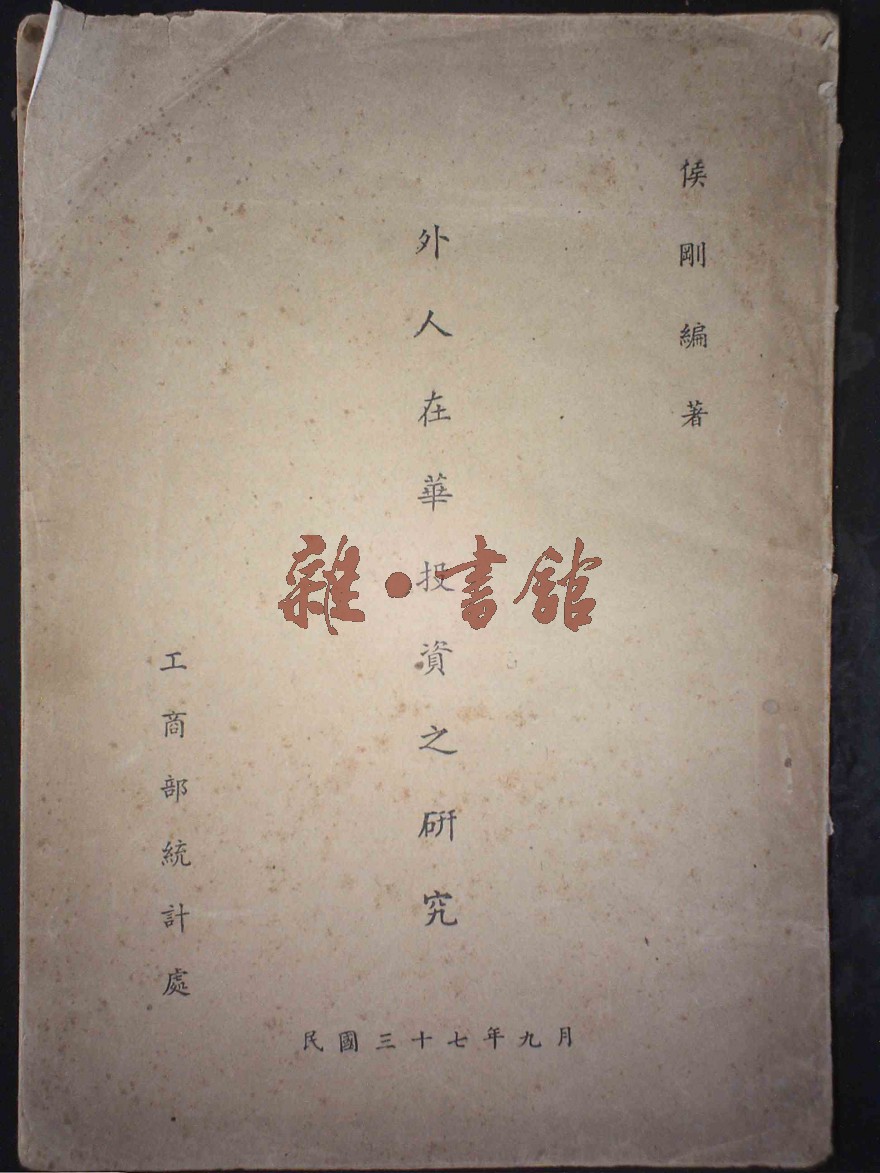 侯剛編著
外人在華投資之研究
工商部統計處
民國三十七年九月
雜·書館